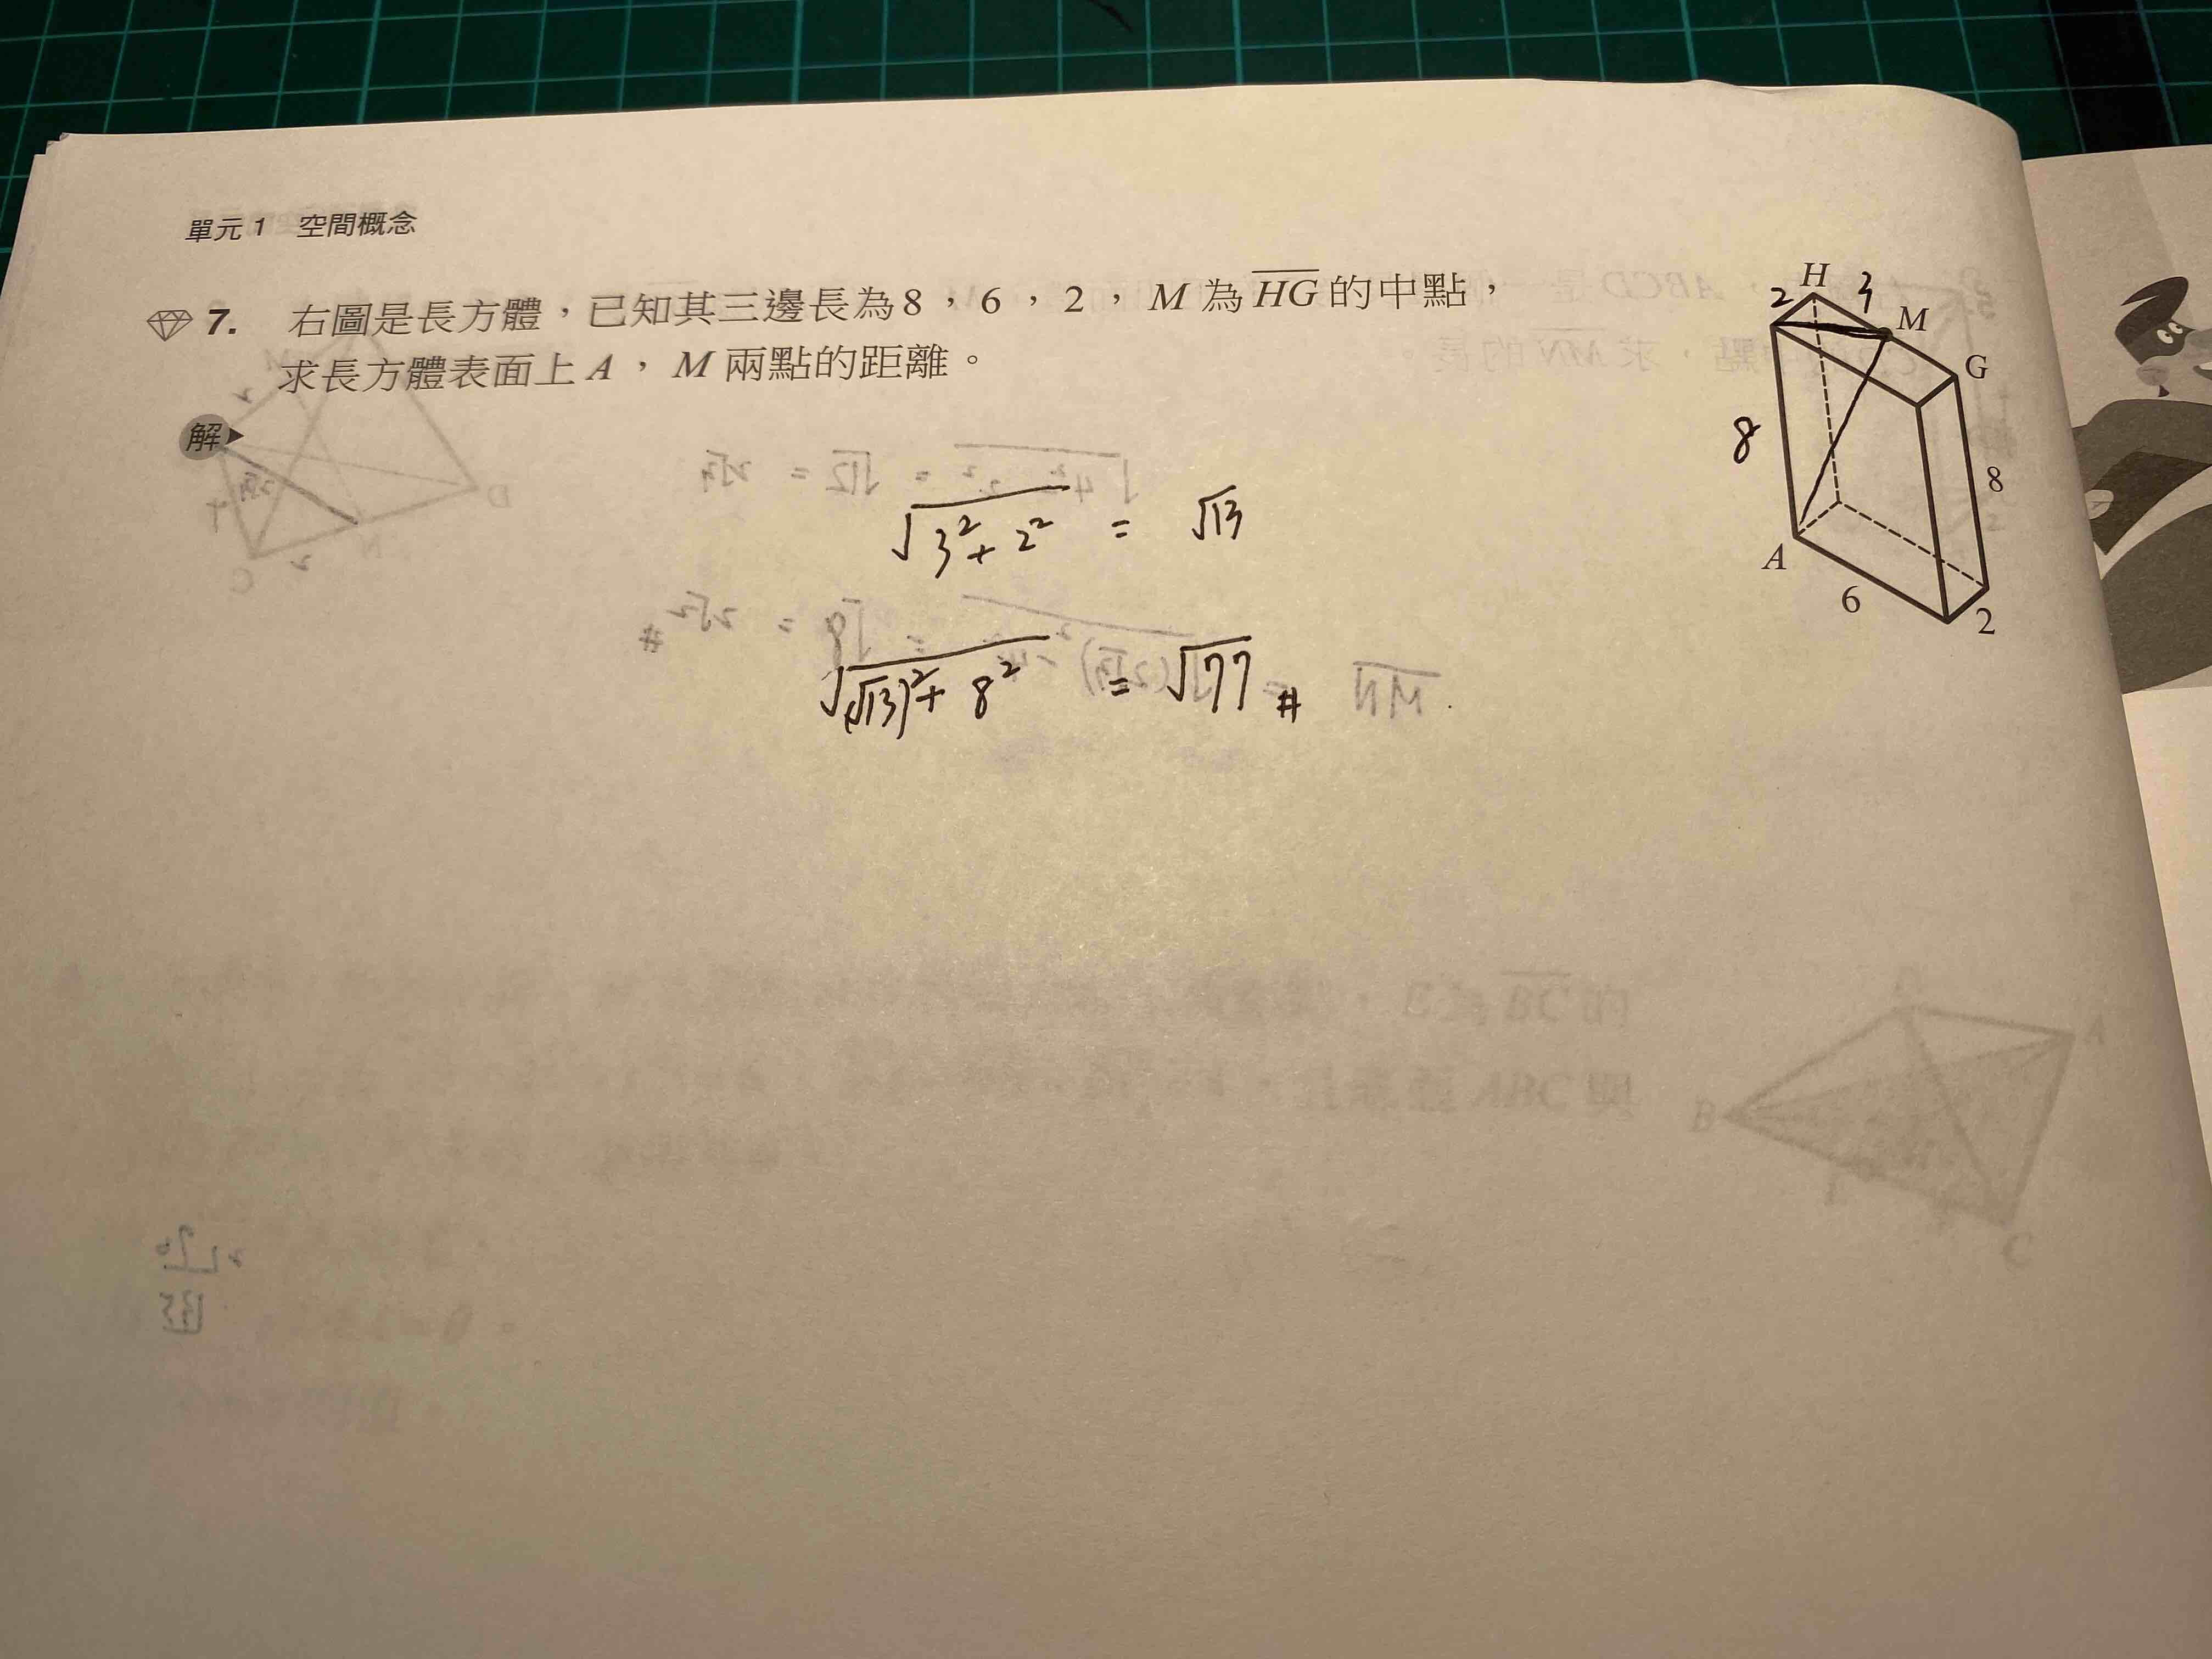 單元 1 空間概念
7. 右圖是長方體，已知其三邊長為8，6，2，M 為 \overline{HG} 的中點，
求長方體表面上 A，M 兩點的距離。
解
√(3²+2²) = √13
√((√13)²+8²) = √77 #
H
2
3
M
G
8
8
A
6
2